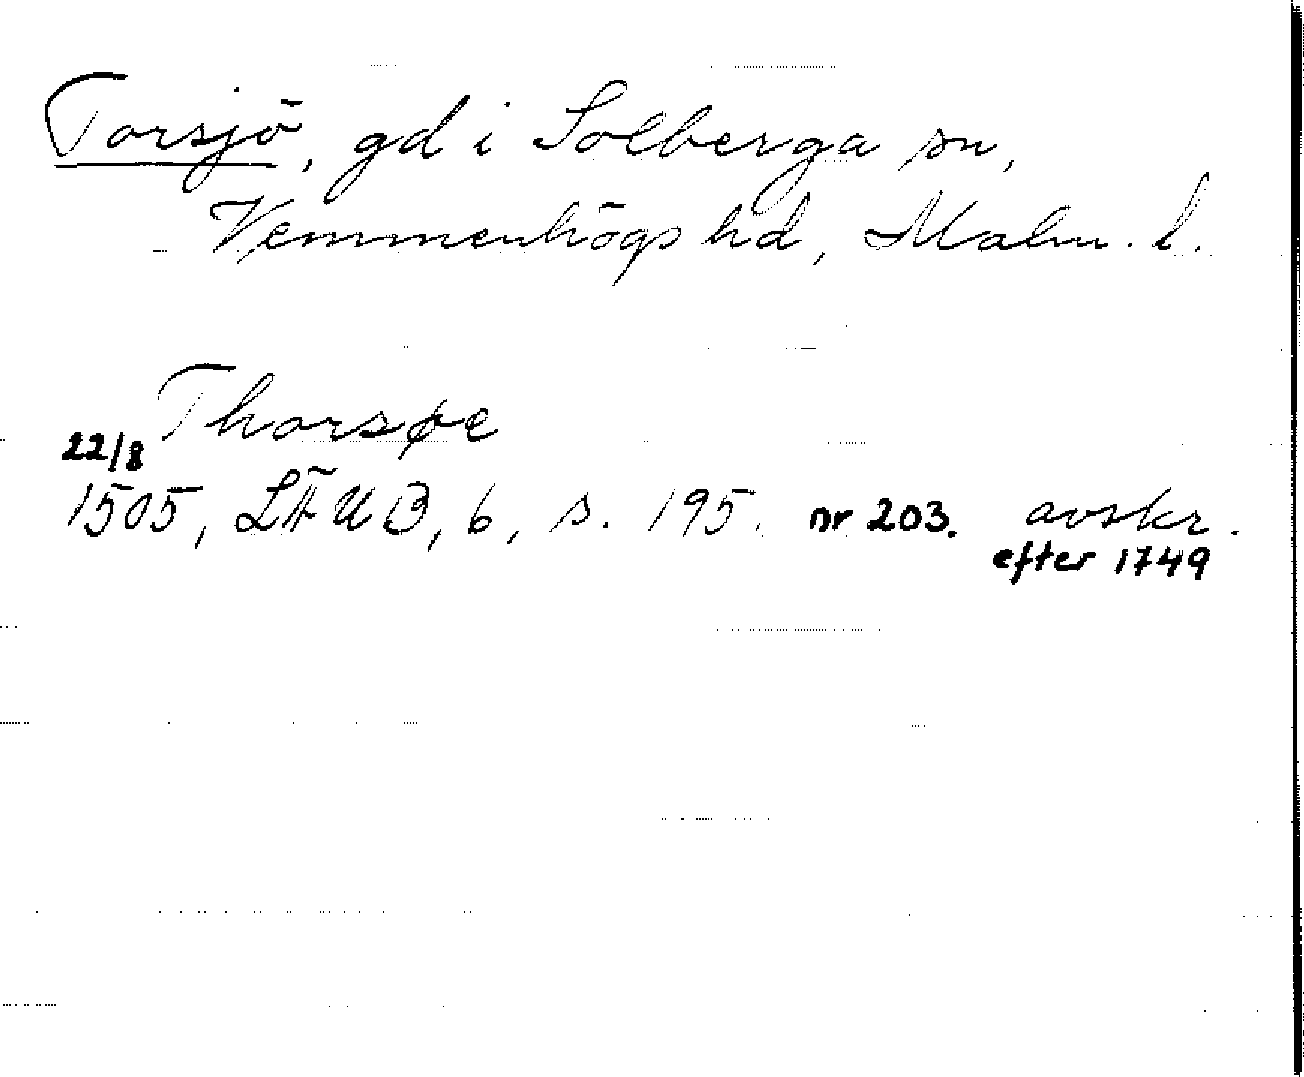 Torsjö, gd i Solberga sn,
Vemmenhögs hd, Malm. l.
Thorsøe
22/8
1505, LÄUB, 6, s. 195. nr 203. avskr.
efter 1749